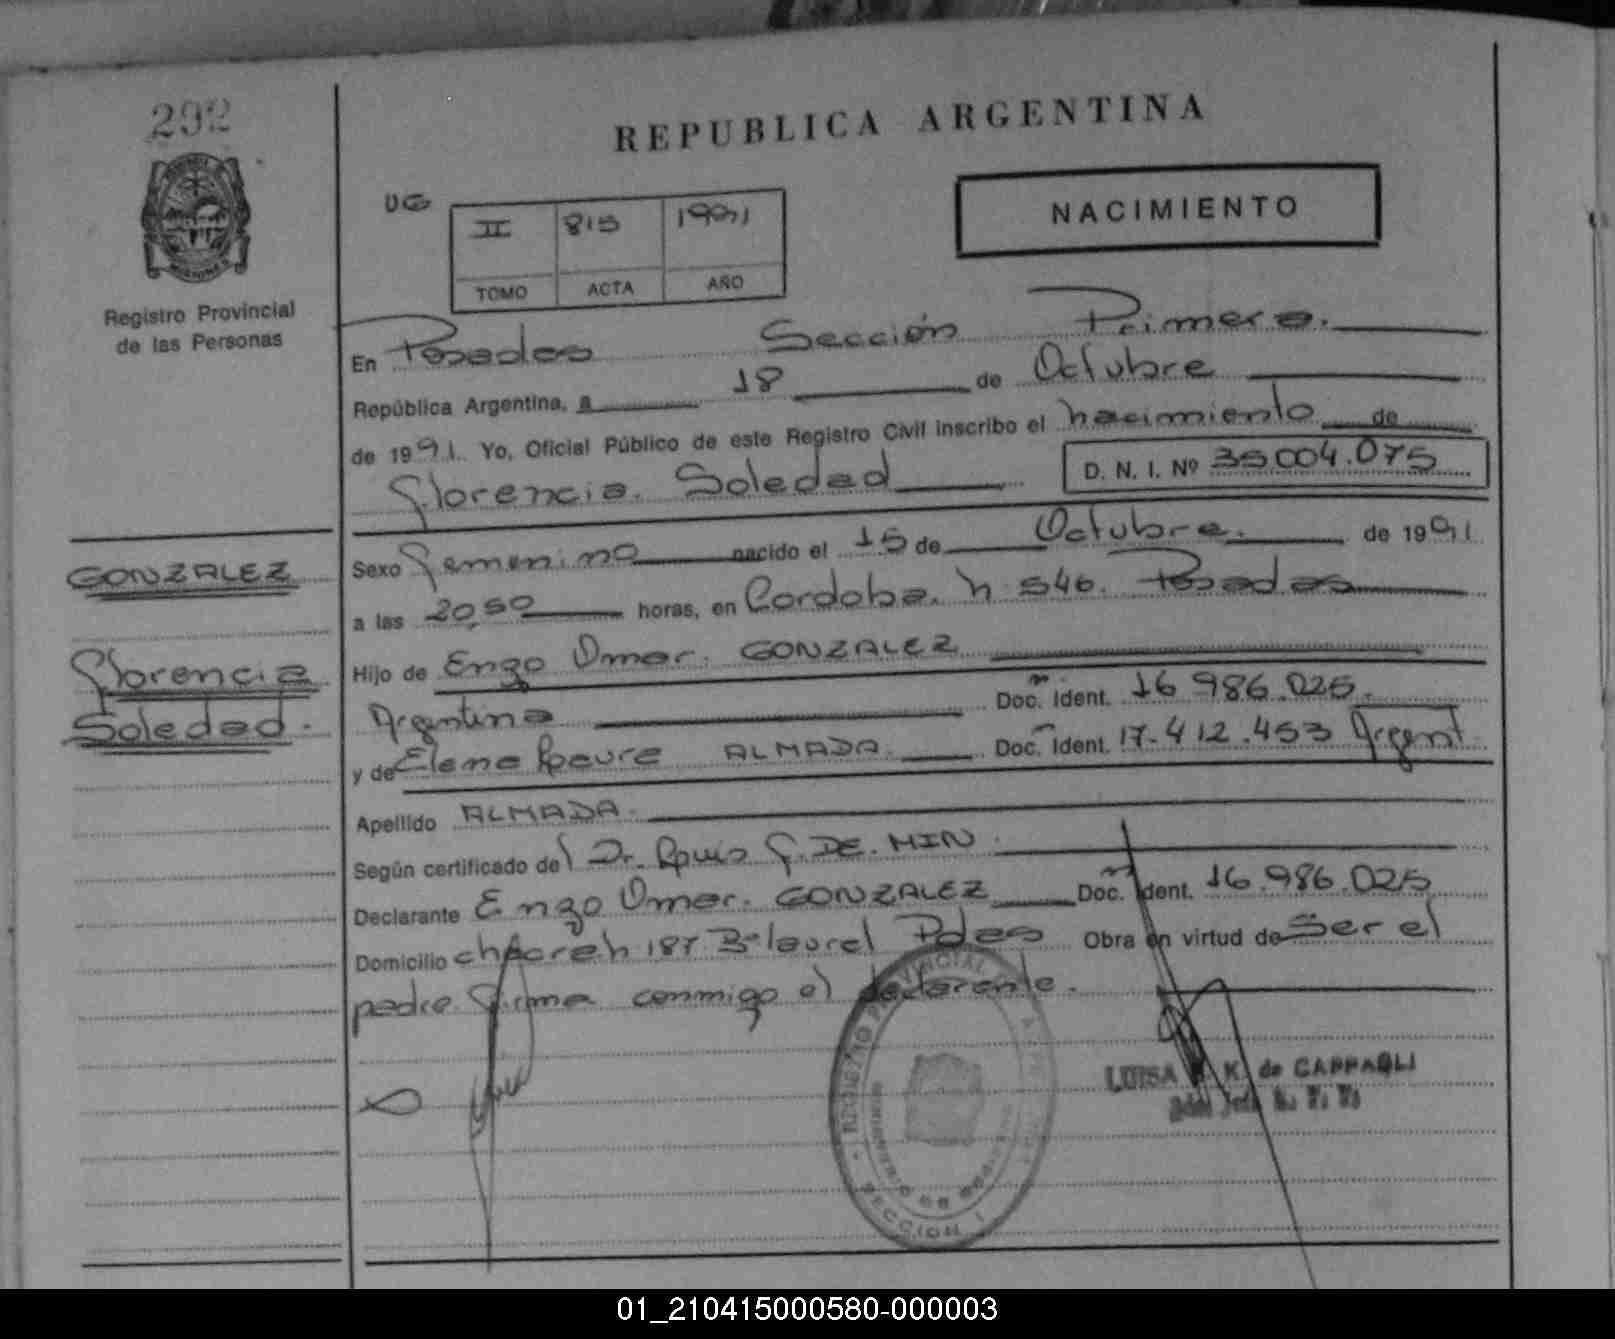 292
REPUBLICA ARGENTINA
UG
II 815 1991
TOMO ACTA AÑO
NACIMIENTO
Registro Provincial
de las Personas
En Posadas Sección Primera.
República Argentina, a 18 de Octubre
de 1991. Yo, Oficial Público de este Registro Civil inscribo el nacimiento de
Florencia Soledad D. N. I. Nº 35004.075
GONZALEZ
Florencia
Soledad.
Sexo Femenino nacido el 15 de Octubre. de 1991
a las 20,50 horas, en Cordoba. n 546. Posadas
Hijo de Enzo Omar. GONZALEZ
Argentina Doc. Ident. 16 986.025.
y de Elena Laura ALMADA. Doc. Ident. 17.412.453 Argent
Apellido ALMADA.
Según certificado del Dr. Luis F. DE. MIN.
Declarante Enzo Omar. GONZALEZ Doc. Ident. 16.986.025
Domicilio chacra n 187 Bº laurel Pdas Obra en virtud de Ser el
padre. Firma conmigo el declarante.
REGISTRO PROVINCIAL DE
SECCION I
LUISA K. de CAPPAGLI
01_210415000580-000003